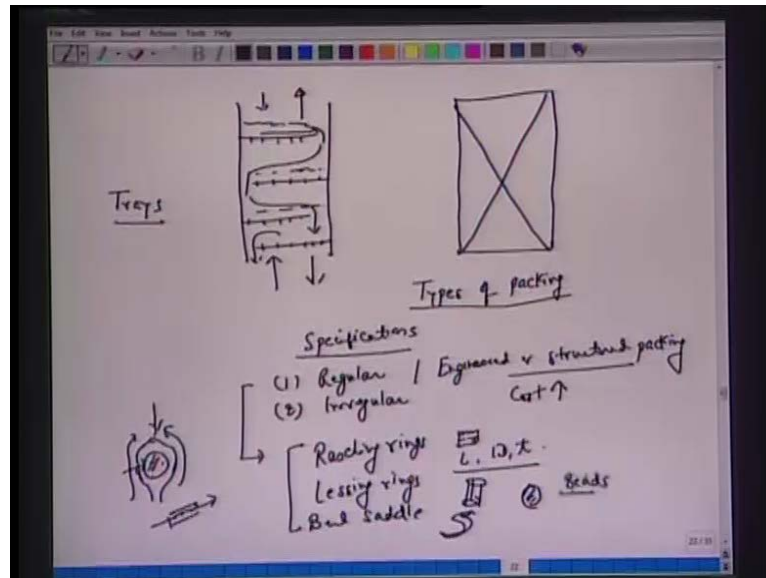 File Edit View Insert Actions Tools Help
Trays
Types of packing
Specifications
(1) Regular / Engineered or structured packing
(2) Irregular
Cost ↑
Rasching rings L, ID, t.
Lessing rings
Beads
Berl Saddle
22